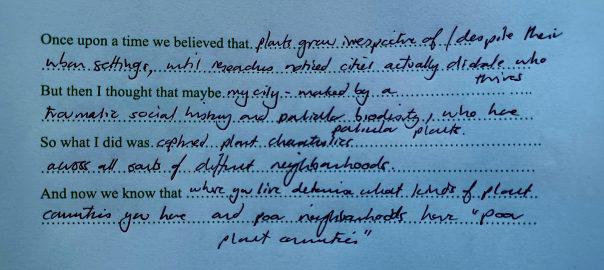 Once upon a time we believed that plants grow irrespective of / despite their
urban settings, until researchers noticed cities actually dictate who
thrives
But then I thought that maybe my city - marked by a
traumatic social history and particular biodiversity, who have
particular plants.
So what I did was captured plant characteristics
across all sorts of different neighbourhoods.
And now we know that where you live determine what kinds of plant
communities you have and poor neighbourhoods have "poor
plant communities"